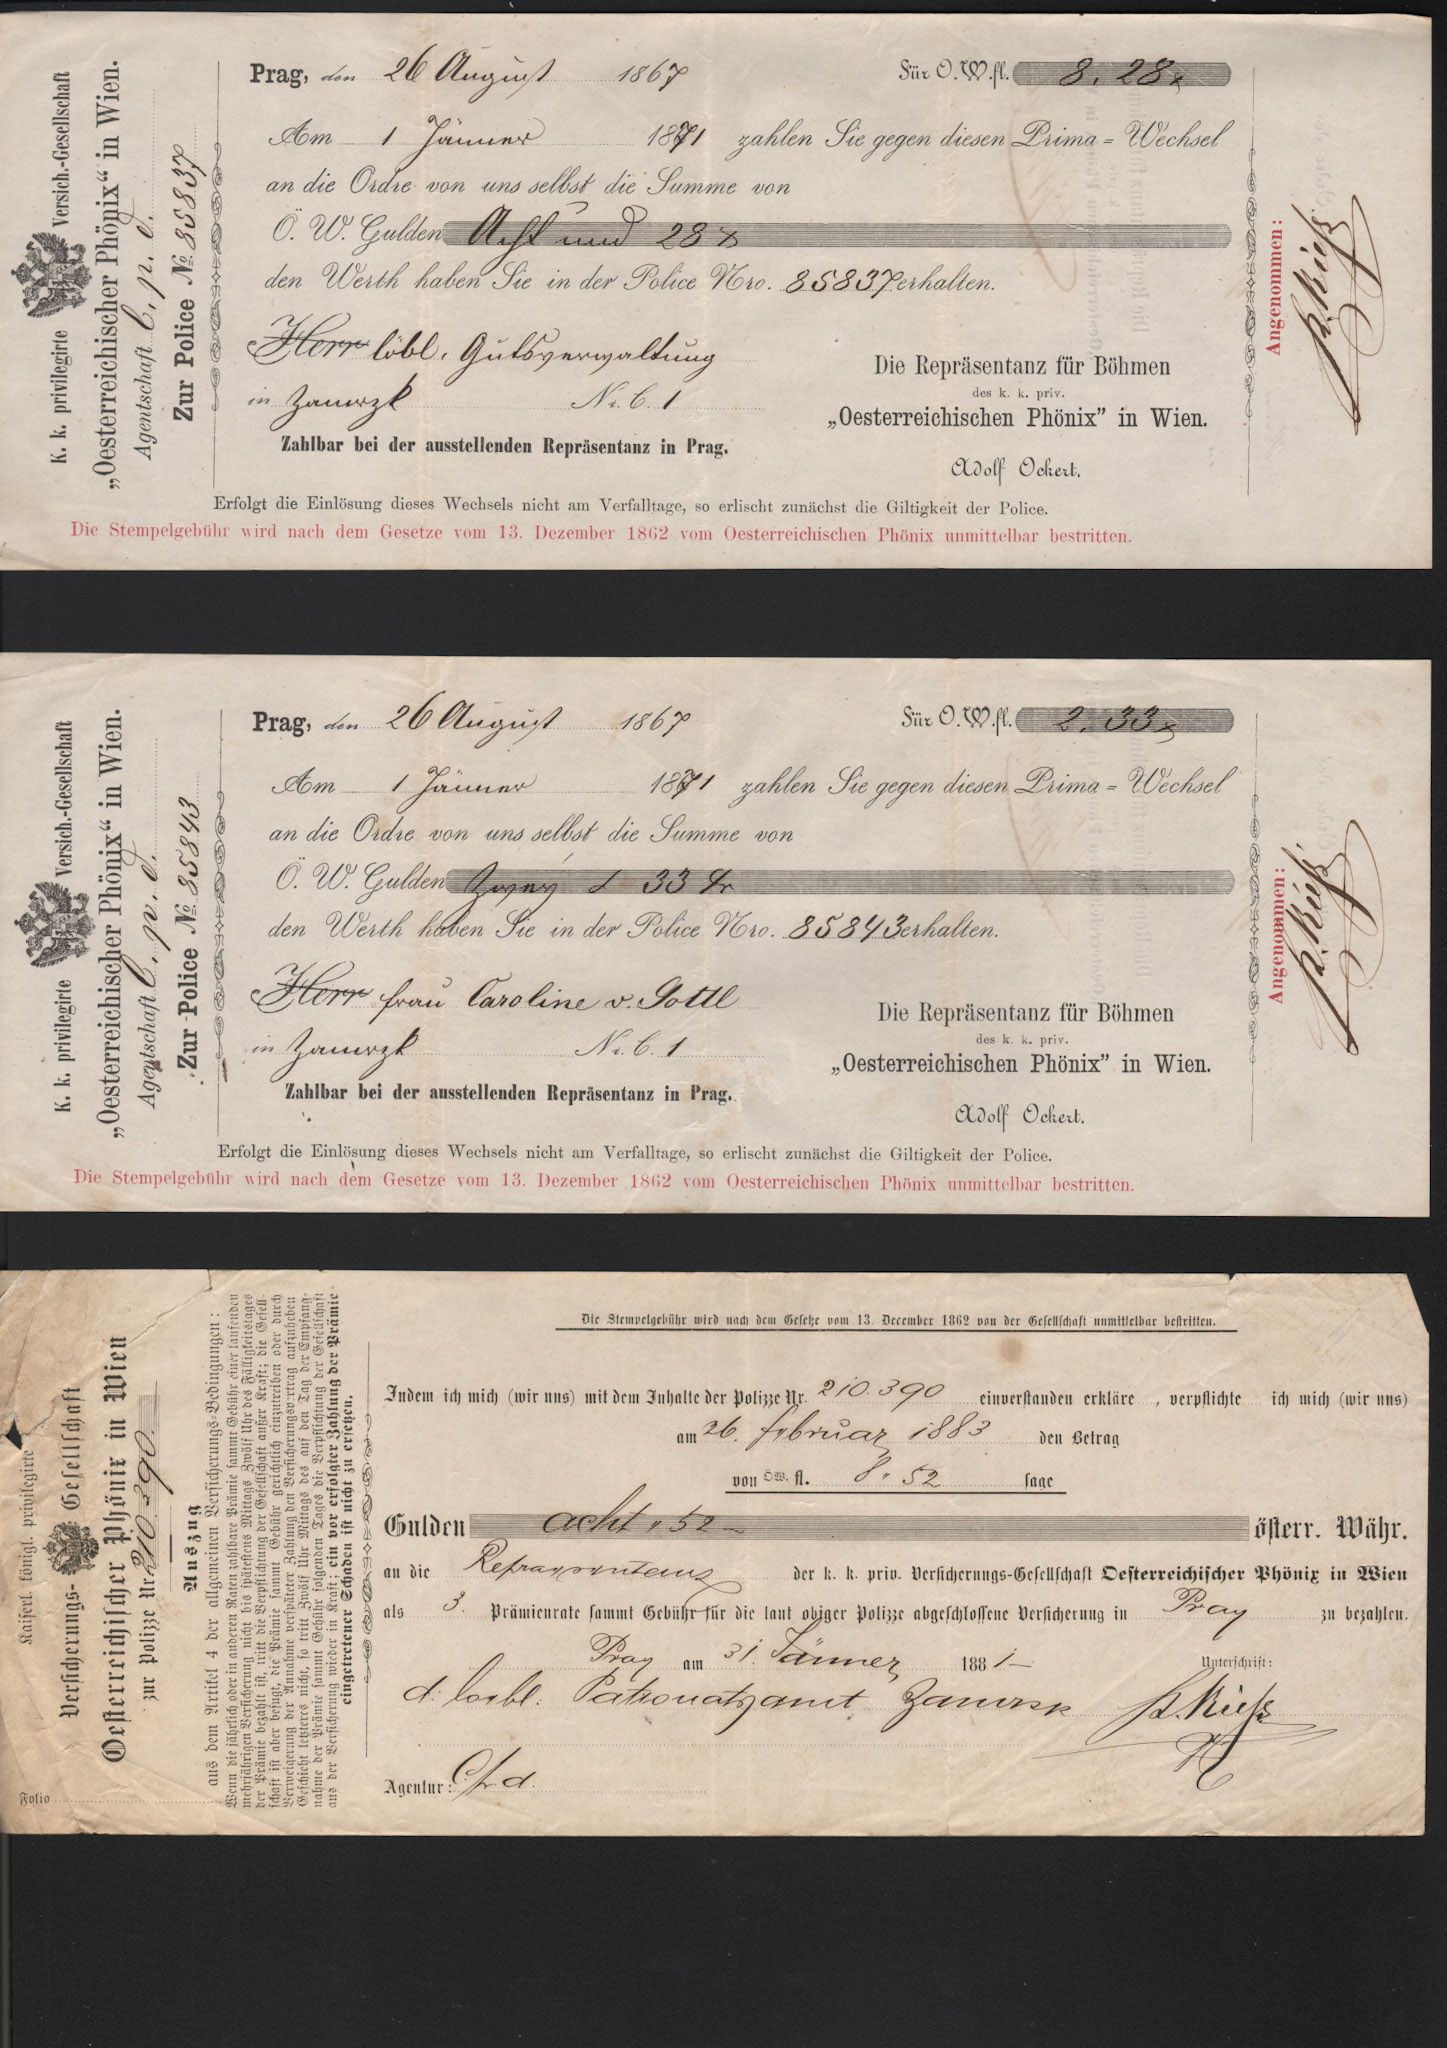 K. k. privilegirte Versich.-Gesellschaft
„Oesterreichischer Phönix“ in Wien.
Agentschaft C. p. d.
Zur Police No. 85837
Prag, den 26 August 1867 Für Ö.W.fl. 8. 28x
Am 1 Jänner 1871 zahlen Sie gegen diesen Prima = Wechsel
an die Ordre von uns selbst die Summe von
Ö. W. Gulden Acht und 28 x
den Werth haben Sie in der Police Nro. 85837 erhalten.
Herr löbl. Gutsverwaltung
in Zamrzk Nr. C. 1
Zahlbar bei der ausstellenden Repräsentanz in Prag.
Die Repräsentanz für Böhmen
des k. k. priv.
„Oesterreichischen Phönix” in Wien.
Adolf Ockert.
Angenommen:
Erfolgt die Einlösung dieses Wechsels nicht am Verfalltage, so erlischt zunächst die Giltigkeit der Police.
Die Stempelgebühr wird nach dem Gesetze vom 13. Dezember 1862 vom Oesterreichischen Phönix unmittelbar bestritten.
K. k. privilegirte Versich.-Gesellschaft
„Oesterreichischer Phönix“ in Wien.
Agentschaft C. p. d.
Zur Police No. 85843
Prag, den 26 August 1867 Für Ö.W.fl. 2. 33x
Am 1 Jänner 1871 zahlen Sie gegen diesen Prima = Wechsel
an die Ordre von uns selbst die Summe von
Ö. W. Gulden Zwey d 33 xr
den Werth haben Sie in der Police Nro. 85843 erhalten.
Herr frau Caroline v. Gottl
in Zamrzk Nr. C. 1
Zahlbar bei der ausstellenden Repräsentanz in Prag.
Die Repräsentanz für Böhmen
des k. k. priv.
„Oesterreichischen Phönix” in Wien.
Adolf Ockert.
Angenommen:
Erfolgt die Einlösung dieses Wechsels nicht am Verfalltage, so erlischt zunächst die Giltigkeit der Police.
Die Stempelgebühr wird nach dem Gesetze vom 13. Dezember 1862 vom Oesterreichischen Phönix unmittelbar bestritten.
Kaiserl. königl. privilegirte
Versicherungs-Gesellschaft
Oesterreichischer Phönix in Wien
zur Polizze Nr. 210.390.
Folio
Auszug
aus dem Artikel 4 der allgemeinen Versicherungs-Bedingungen:
Wenn die jährlich oder in anderen Raten zahlbare Prämie sammt Gebühr einer laufenden
mehrjährigen Versicherung nicht bis spätestens Mittags Zwölf Uhr des Fälligkeitstages
der Prämie bezahlt ist, tritt die Verpflichtung der Gesellschaft außer Kraft; die Gesell-
schaft ist aber befugt, die Prämie sammt Gebühr gerichtlich einzutreiben oder durch
Verweigerung der Annahme verspäteter Zahlung den Versicherungsvertrag aufzuheben
Geschieht letzteres nicht, so tritt Zwölf Uhr Mittags des auf den Tag der Empfang-
nahme der Prämie sammt Gebühr folgenden Tages die Verpflichtung der Gesellschaft
aus der Versicherung wieder in Kraft; ein vor erfolgter Zahlung der Prämie
eingetretener Schaden ist nicht zu ersetzen.
Die Stempelgebühr wird nach dem Gesetze vom 13. December 1862 von der Gesellschaft unmittelbar bestritten.
Indem ich mich (wir uns) mit dem Inhalte der Polizze Nr. 210.390 einverstanden erkläre, verpflichte ich mich (wir uns)
am 26. februar 1883 den Betrag
von ÖW. fl. 8. 52 sage
Gulden acht " 52 — österr. Währ.
an die Repraesentanz der k. k. priv. Versicherungs-Gesellschaft Oesterreichischer Phönix in Wien
als 3. Prämienrate sammt Gebühr für die laut obiger Polizze abgeschlossene Versicherung in Prag zu bezahlen.
Prag am 31. Jänner 1881 Unterschrift:
d. loebl. Patronatsamt Zamrsk
Agentur: C/p d.